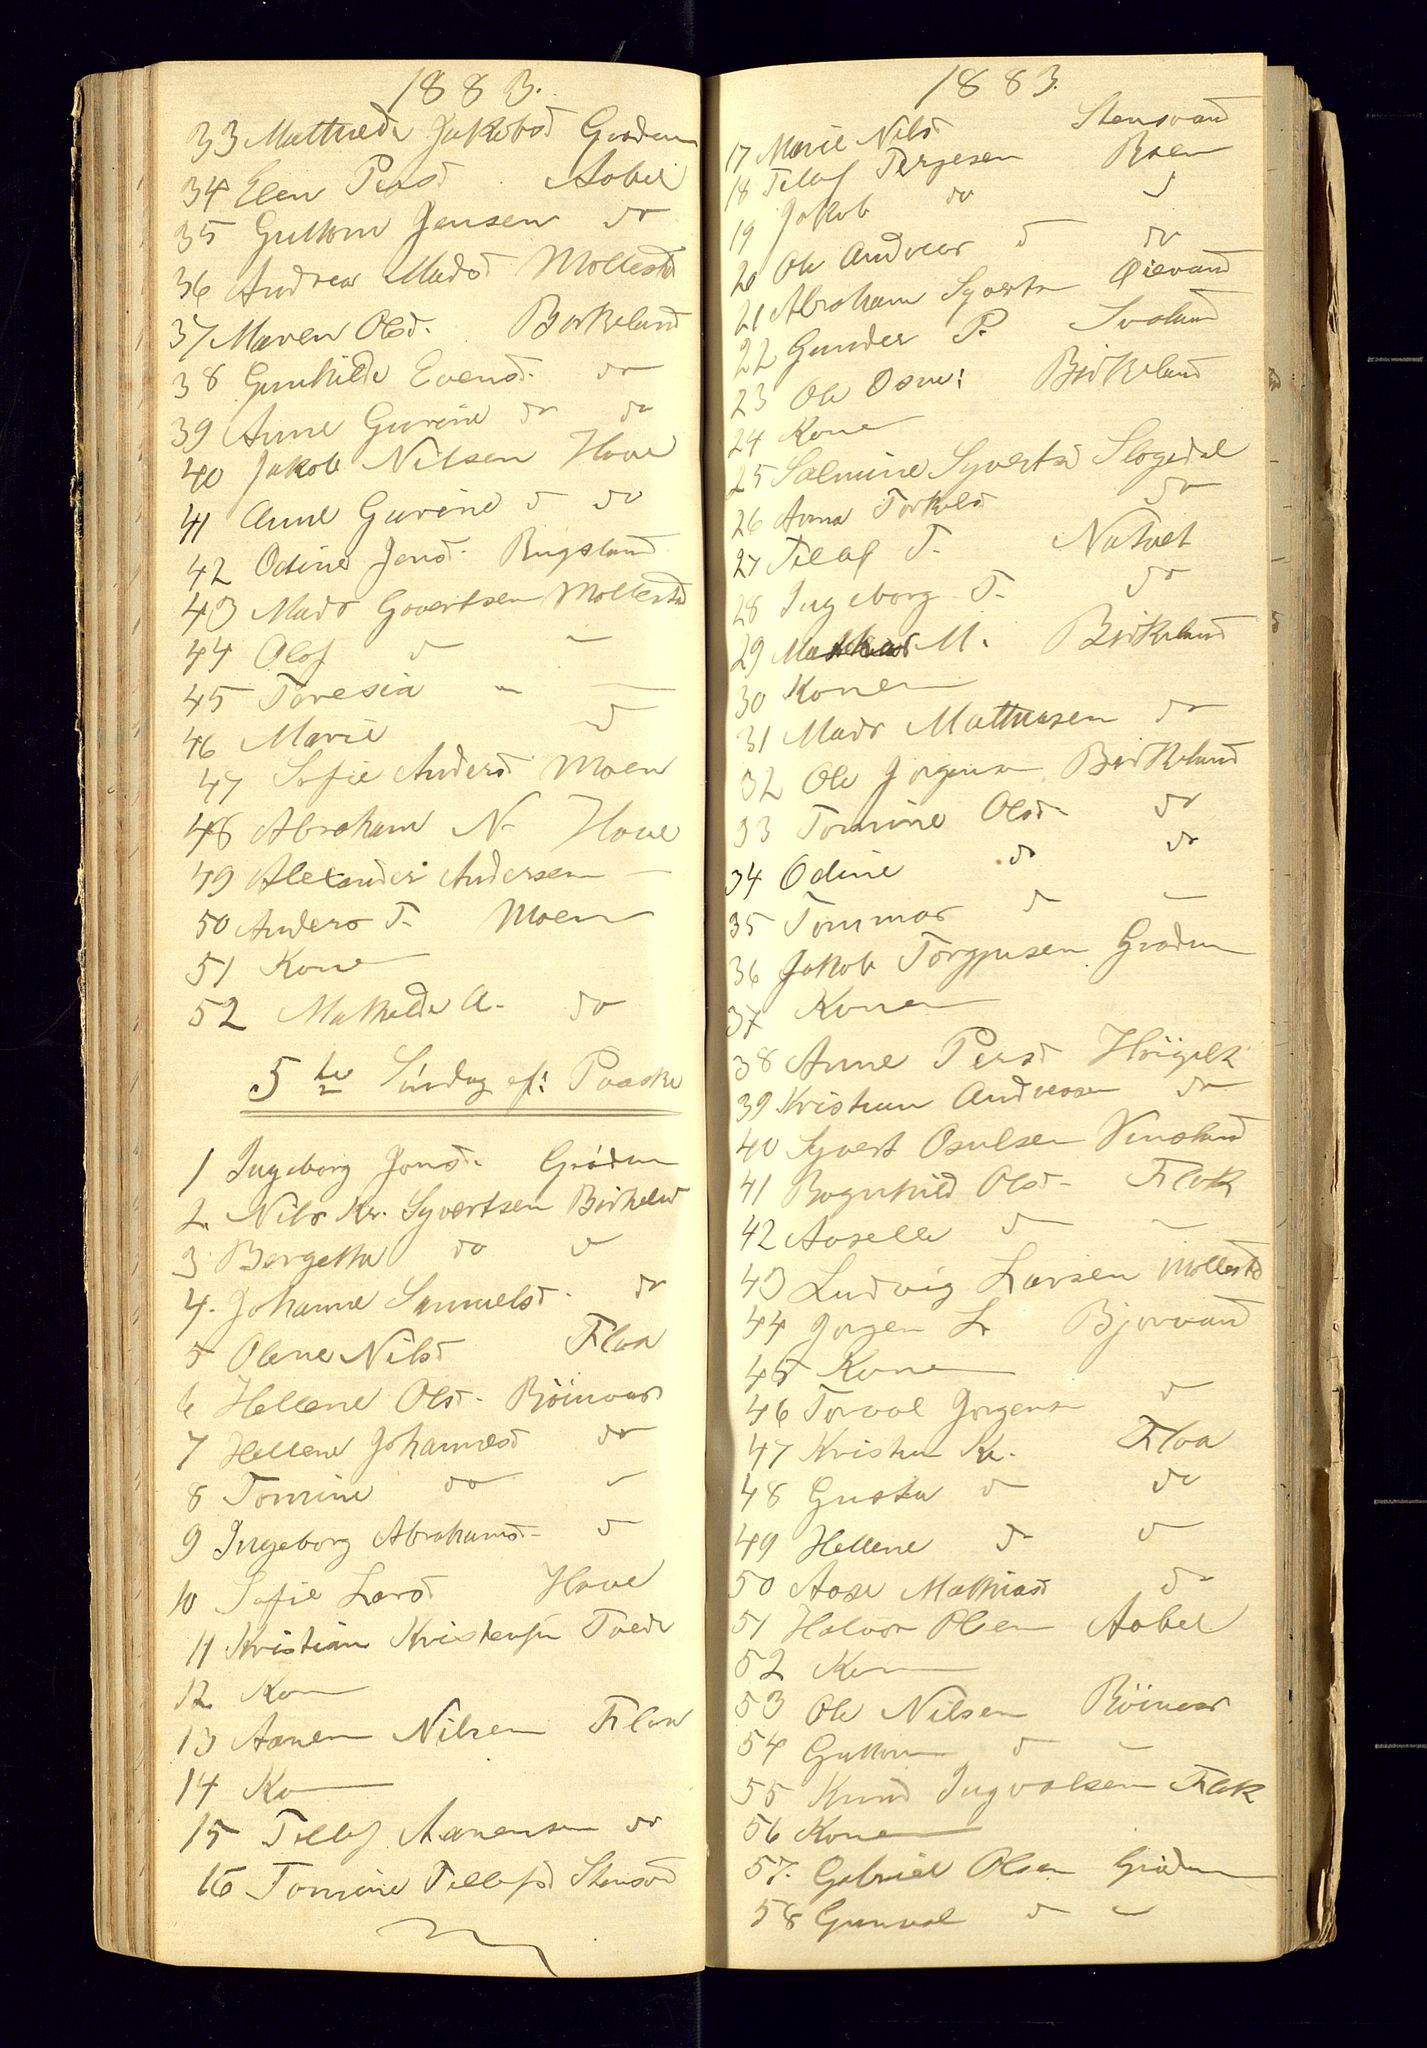 1883.
33 Mathilde Jakobsd Grødum
34 Elen Persd Aabel
35 Guttorm Jensen do
36 Andrea Madsd Mollestad
37 Maren Olsd. Birkeland
38 Gunhilde Evensd. do
39 Anne Gurine do do
40 Jakob Nilsen Hove
41 Anne Gurine d do
42 Odine Jensd. Rugsland
43 Mads Govertsen Mollestad
44 Olof d –
45 Teresia – –
46 Marie d
47 Sofie Andersd Moen
48 Abraham N. Hove
49 Alexander Andersen –
50 Anders T. Moen
51 Kone
52 Mathilde A. do
5te Søndag ef: Paaske
1 Ingeborg Jensd. Grødum
2. Nils Kr. Syvertsen Birkeland
3 Bergette do d
4. Johanne Samuelsd. do
5 Olene Nilsd Flaa
6 Hellene Olsd. Röinaas
7 Hellene Johannesd do
8 Tomine do –
9 Ingeborg Abrahamsd. d
10 Sofie Larsd Hove
11 Kristian Kristensen Tvede
12 Kone
13 Aanen Nilsen Flaa
14 Kone
15 Tellef Aanensen do
16 Tomine Tellefsd Stensvand
1883.
17 Marie Nilsd Stensvand
18 Tellef Terjesen Roen
19 Jakob do d
20 Ole Andreas d do
21 Abraham Syverts Øievand
22 Gunder P. Svaland
23 Ole Osm: Birkeland
24 Konen
25 Salmine Syvertsd Slogedal
26 Anna Torkelsd do
27 Tellef T. Natvet
28 Ingeborg T. do
29 M. Birkeland
30 Konen
31 Mads Mathiasen do
32 Ole Jørgensen Birkeland
33 Tomine Olsd. do
34 Odine do do
35 Tommas d –
36 Jakob Torgjusen Grødum
37 Konen
38 Anne Persd Høigilt
39 Kristian Andreasen do
40 Syvert Osulsen Vinsland
41 Bognhild Olsd. Flak
42 Aaselle d –
43 Ludvig Larsen Mollestad
44 Jørgen L. Bjorvand
45 Konen
46 Torval Jørgensen d
47 Kristian Kr. Flaa
48 Gusta d do
49 Hellene d d
50 Aase Mathiasd do
51 Halvor Olsen Aabel
52 Kone
53 Ole Nilsen Röinaas
54 Guttorm d –
55 Knud Ingvalsen Flak
56 Konen
57. Gabriel Olsen Grødum
58 Gunval d –